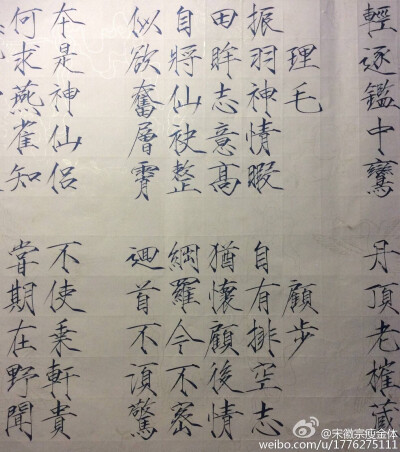 輕逐鑑中鸞
理毛
振羽神情暇
回眸志意高
自將仙袂整
似欲奮層霄
本是神仙侶
何求燕雀知
丹頂老摧藏
顧步
自有排空志
猶懷顧後情
網羅今不密
迴首不須驚
不使乘軒貴
常期在野聞
宋徽宗瘦金体
weibo.com/u/1776275111